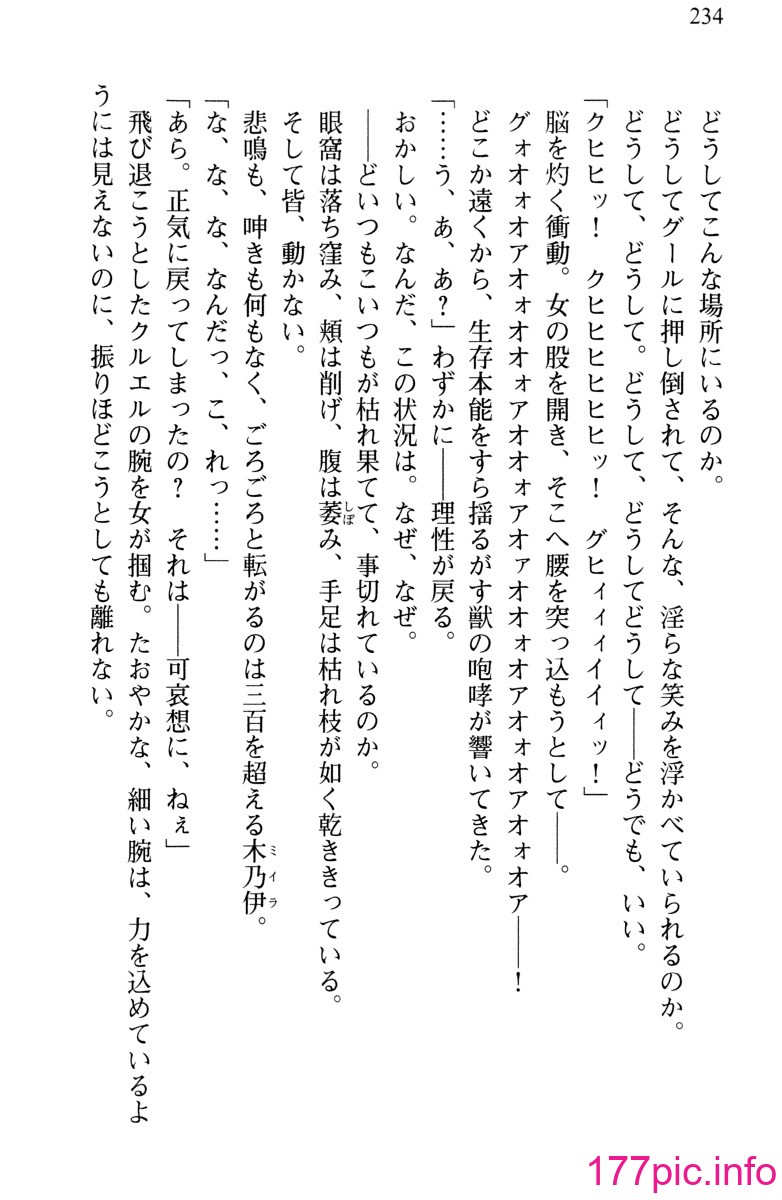 234
どうしてこんな場所にいるのか。
どうしてグールに押し倒されて、そんな、淫らな笑みを浮かべていられるのか。
どうして、どうして。どうして、どうしてどうして――どうでも、いい。
「クヒヒッ！　クヒヒヒヒヒヒッ！　グヒィィィイイィッ！」
脳を灼く衝動。女の股を開き、そこへ腰を突っ込もうとして――。
グォオォオアオォオオォアオオォアオァオオォオアオォオアオォオア――！
どこか遠くから、生存本能をすら揺るがす獣の咆哮が響いてきた。
「……う、あ、あ？」わずかに――理性が戻る。
おかしい。なんだ、この状況は。なぜ、なぜ。
――どいつもこいつもが枯れ果てて、事切れているのか。
眼窩は落ち窪み、頬は削げ、腹は萎しぼみ、手足は枯れ枝が如く乾ききっている。
そして皆、動かない。
悲鳴も、呻きも何もなく、ごろごろと転がるのは三百を超える木乃伊ミイラ。
「な、な、な、なんだっ、こ、れっ……」
「あら。正気に戻ってしまったの？　それは――可哀想に、ねぇ」
飛び退こうとしたクルエルの腕を女が掴む。たおやかな、細い腕は、力を込めているよ
うには見えないのに、振りほどこうとしても離れない。
177pic.info